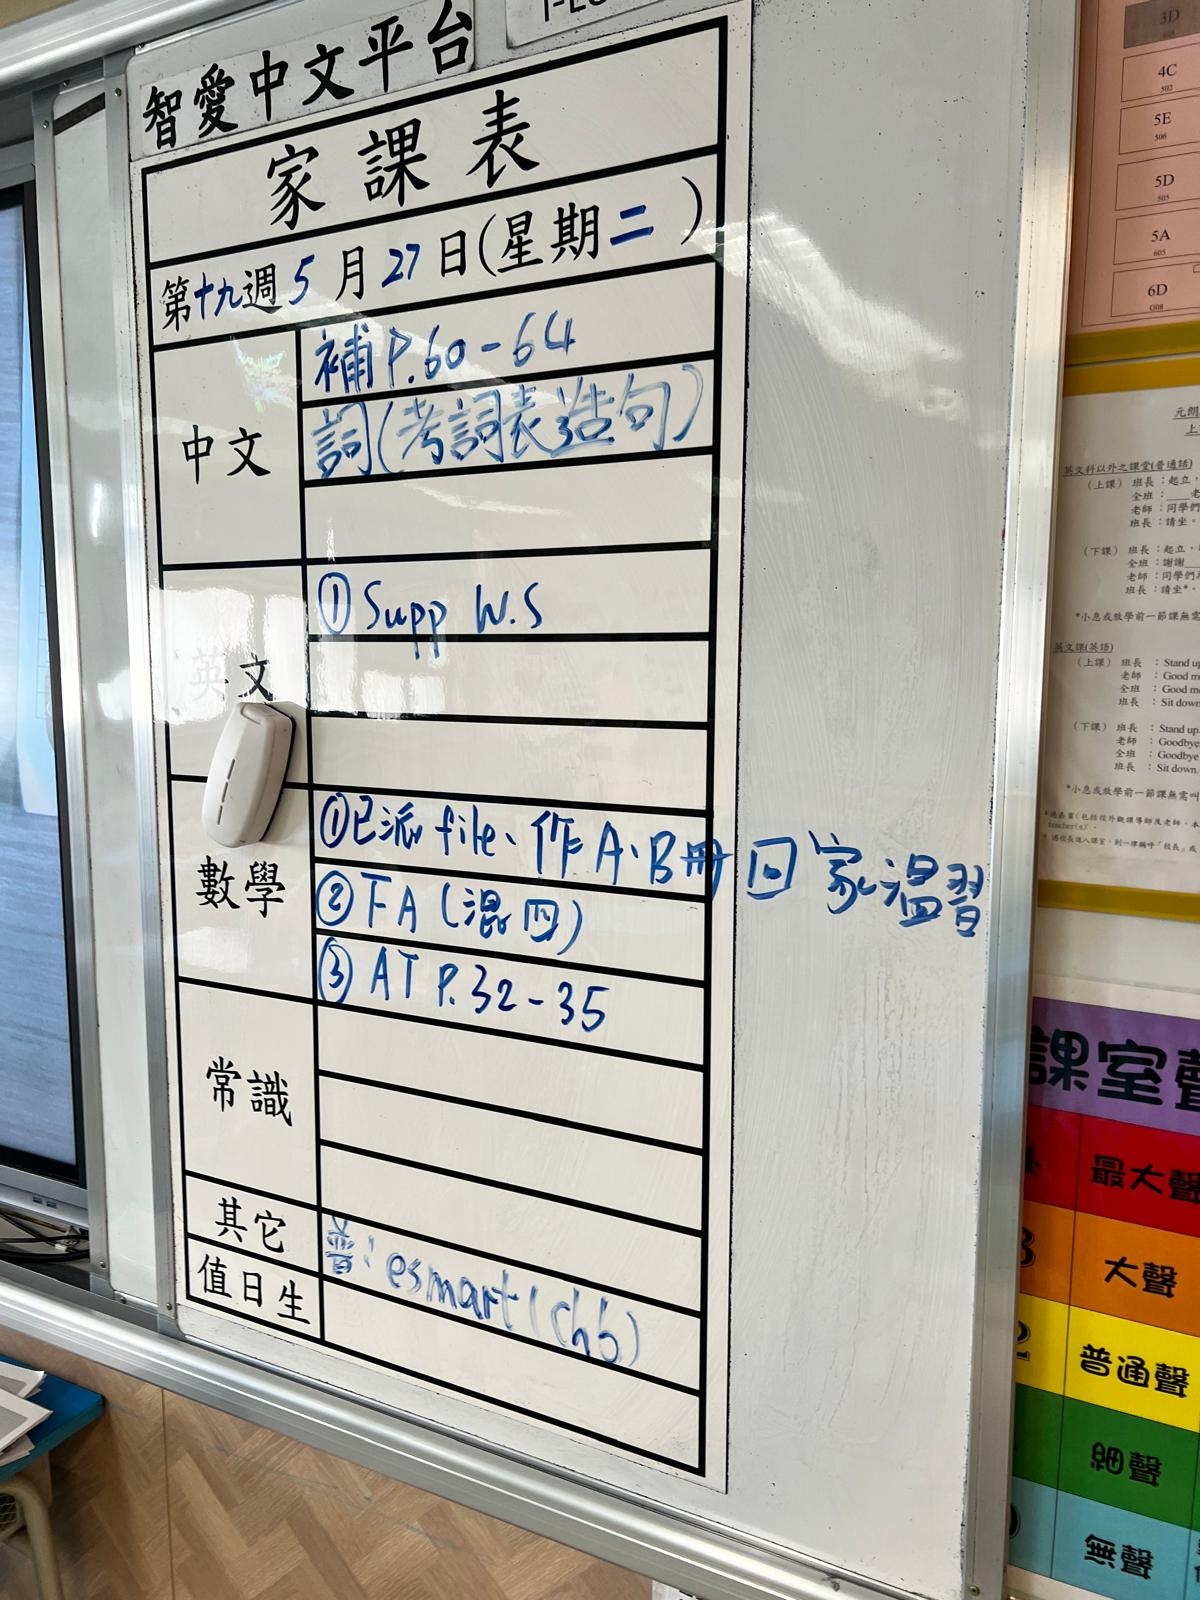 智愛中文平台
家課表
第十九週5月27日(星期二)
中文
補P.60-64
詞(考詞表造句)
英文
① Supp W.S
數學
①已派file、作A、B冊回家溫習
②FA(混四)
③ AT P.32-35
常識
其它
普：esmart(ch6)
值日生
3D
4C
502
5E
506
5D
505
5A
605
6D
G08
元朗
上
英文科以外之課堂(普通話)
(上課) 班長：起立，
全班：____老
老師：同學們
班長：請坐。
(下課) 班長：起立，
全班：謝謝
老師：同學們
班長：請坐*。
*小息或放學前一節課無需
英文課(英語)
(上課) 班長 : Stand up
老師 : Good m
全班 : Good m
班長 : Sit down
(下課) 班長 : Stand up.
老師 : Goodbye
全班 : Goodbye
班長 : Sit down.
*小息或放學前一節課無需叫
teacher(s)
課室聲
4 最大聲
3 大聲
2 普通聲
細聲
0 無聲